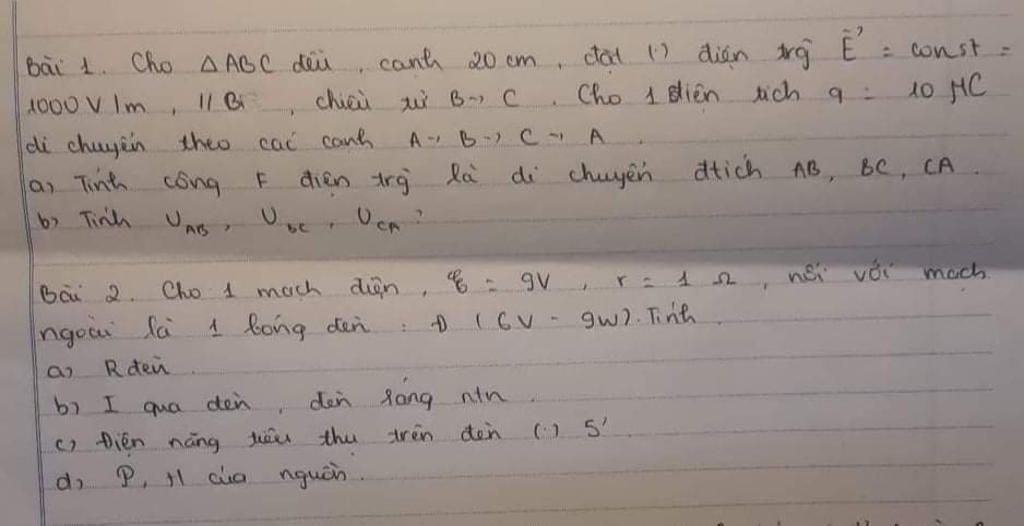 Bài 1. Cho △ABC đều, cạnh 20 cm, đặt (·) điện trg E⃗ = const =
1000 V/m, // BC, chiều từ B → C. Cho 1 điện tích q = 10 μC
di chuyển theo các cạnh A → B → C → A.
a) Tính công F điện trg là di chuyển đtích AB, BC, CA.
b) Tính U_AB, U_BC, U_CA?
Bài 2. Cho 1 mạch điện, ℰ = 9V, r = 1 Ω, nối với mạch
ngoài là 1 bóng đèn: Đ (6V - 9W). Tính
a) R đèn.
b) I qua đèn, đèn sáng ntn.
c) Điện năng tiêu thụ trên đèn (·) 5'
d) P, H của nguồn.